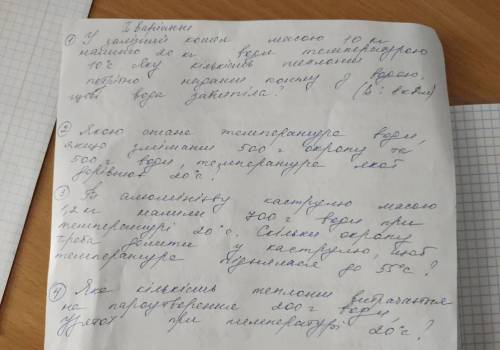 І варіант
① У залізний котел масою 10 кг
налито 20 кг води температурою
10°С Яку кількість теплоти
потрібно надати котлу з водою,
щоб вода закипіла?
② Якою стане температура води,
якщо змішати 500 г окропу та
500 г води, температура якої
дорівнює 20°с?
③ В алюмінієву каструлю масою
1,2 кг налили 700 г води при
температурі 20°с. Скільки окропу
треба долити у каструлю, щоб
температура піднялася до 55°с?
④ Яка кількість теплоти витрачається
на пароутворення 200 г води,
узятої при температурі 20°с?